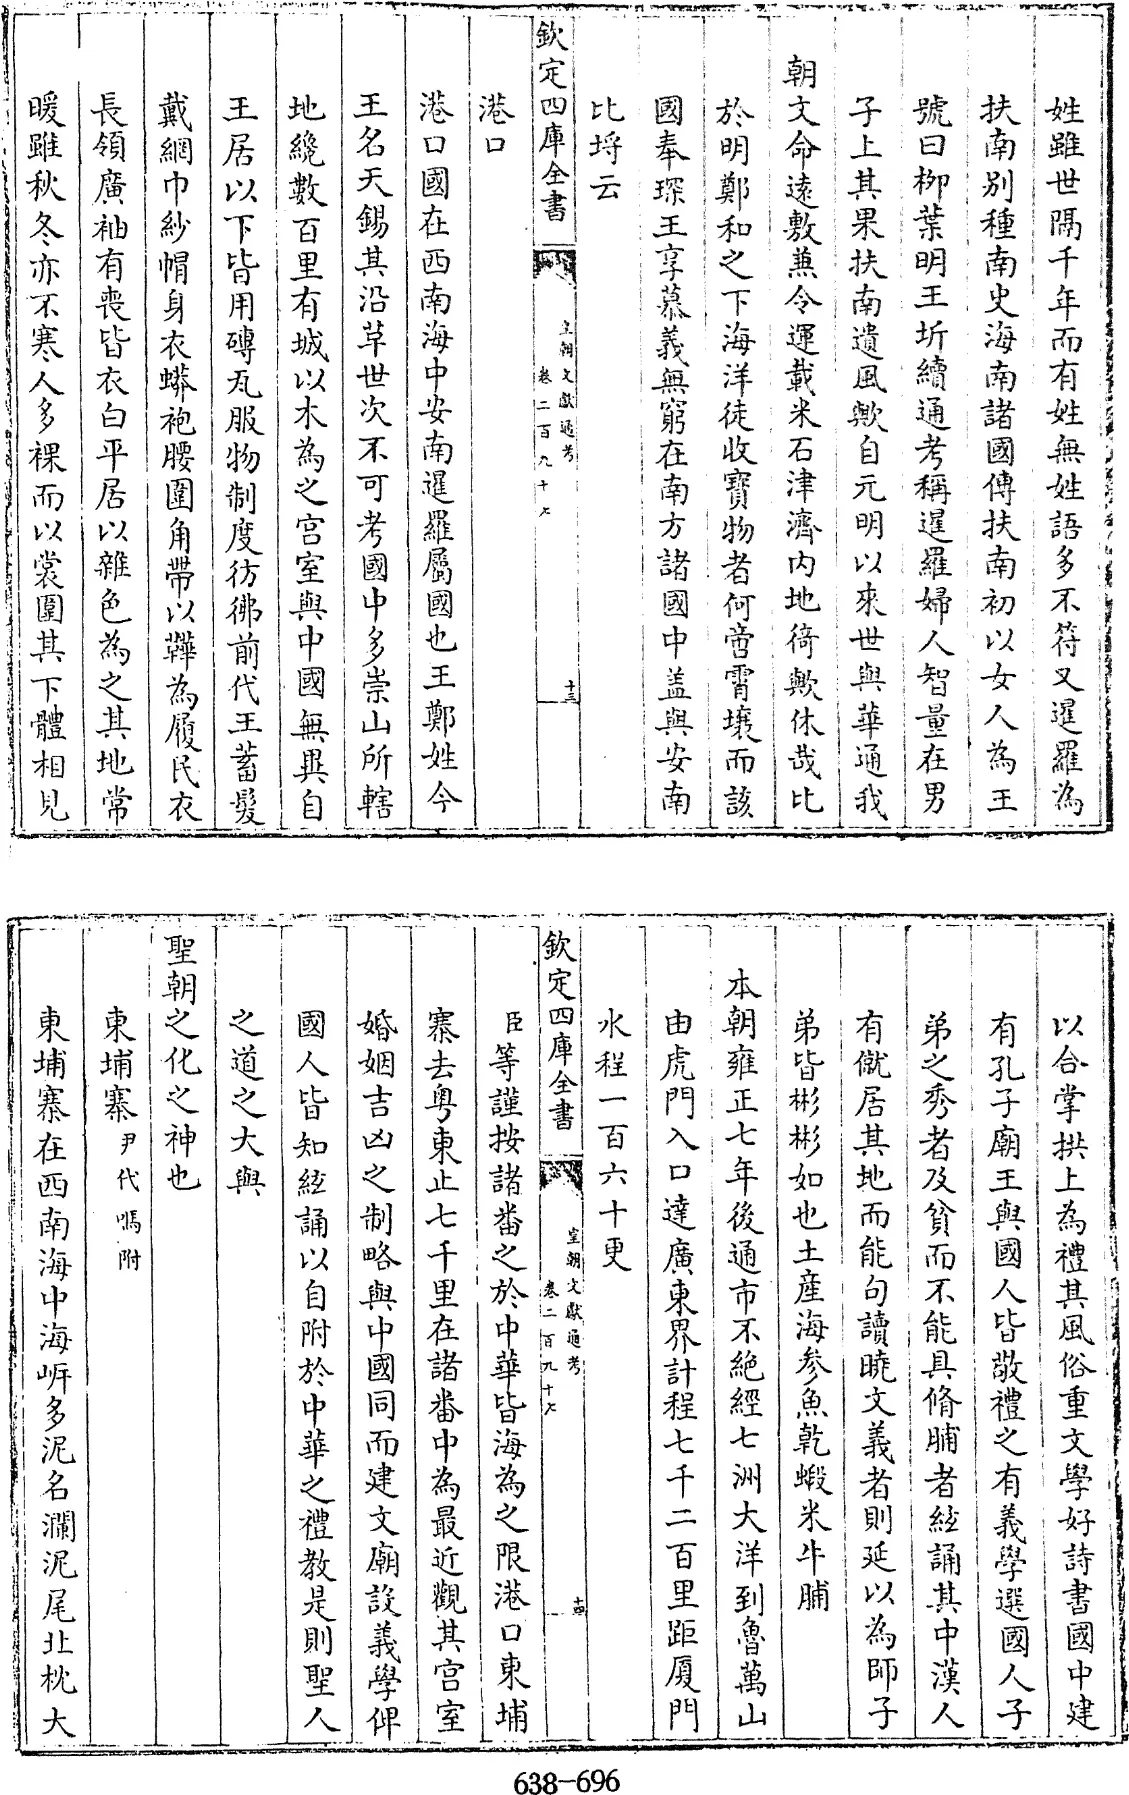 姓雖世隔千年而有姓無姓語多不符又暹羅為
扶南别種南史海南諸國傳扶南初以女人為王
號曰栁葉明王圻續通考稱暹羅婦人智量在男
子上其果扶南遺風歟自元明以來世與華通我
朝文命逺敷兼令運載米石津濟内地猗歟休哉比
於明鄭和之下海洋徒收寳物者何啻霄壤而該
國奉琛王享慕義無窮在南方諸國中盖與安南
比埒云
欽定四庫全書
皇朝文獻通考
卷二百九十七
十三
港口
港口國在西南海中安南暹羅屬國也王鄭姓今
王名天錫其沿革世次不可考國中多崇山所轄
地纔數百里有城以木為之宫室與中國無異自
王居以下皆用磚瓦服物制度彷彿前代王蓄髮
戴網巾紗帽身衣蟒袍腰圍角帶以鞾為履民衣
長領廣袖有喪皆衣白平居以雜色為之其地常
暖雖秋冬亦不寒人多裸而以裳圍其下體相見
以合掌拱上為禮其風俗重文學好詩書國中建
有孔子廟王與國人皆敬禮之有義學選國人子
弟之秀者及貧而不能具脩脯者絃誦其中漢人
有僦居其地而能句讀曉文義者則延以為師子
弟皆彬彬如也土産海參魚乾蝦米牛脯
本朝雍正七年後通市不絶經七洲大洋到魯萬山
由虎門入口達廣東界計程七千二百里距厦門
水程一百六十更
欽定四庫全書
皇朝文獻通考
卷二百九十七
十四
臣等謹按諸番之於中華皆海為之限港口東埔
寨去粤東止七千里在諸番中為最近觀其宫室
婚姻吉凶之制略與中國同而建文廟設義學俾
國人皆知絃誦以自附於中華之禮教是則聖人
之道之大與
聖朝之化之神也
東埔寨尹代嗎附
東埔寨在西南海中海㟁多泥名瀾泥尾北枕大
638-696